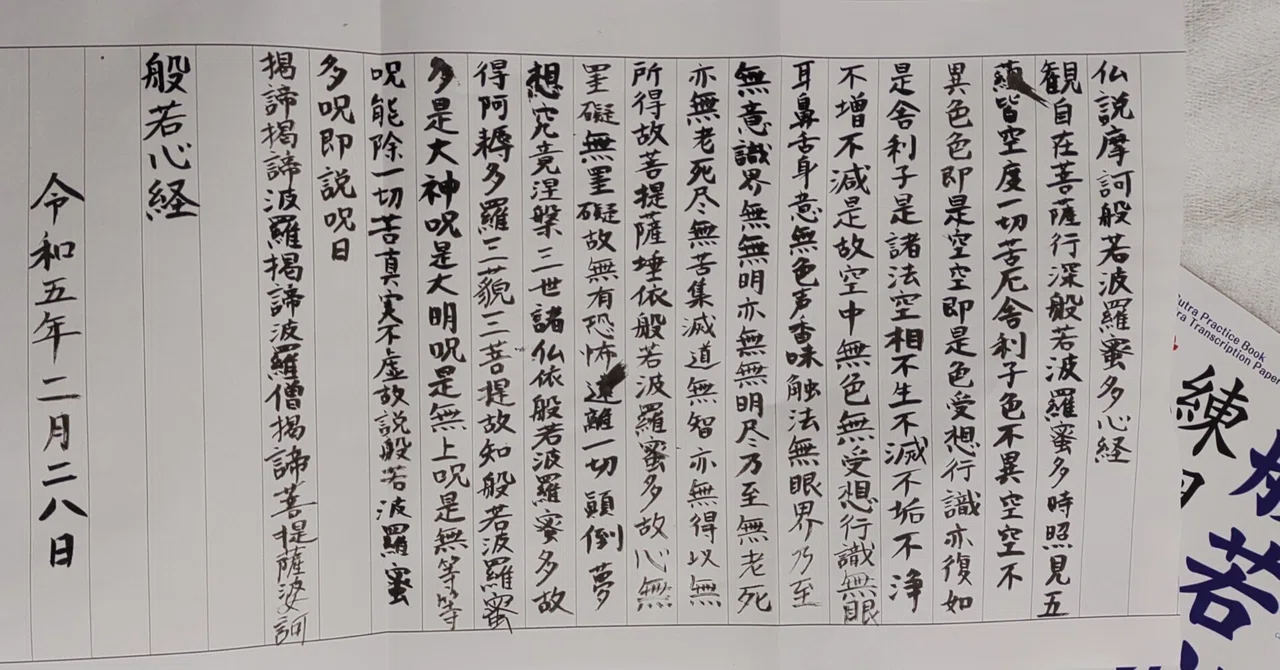 仏説摩訶般若波羅蜜多心経
観自在菩薩行深般若波羅蜜多時照見五
蘊皆空度一切苦厄舎利子色不異空空不
異色色即是空空即是色受想行識亦復如
是舎利子是諸法空相不生不滅不垢不浄
不増不減是故空中無色無受想行識無眼
耳鼻舌身意無色声香味触法無眼界乃至
無意識界無無明亦無無明尽乃至無老死
亦無老死尽無苦集滅道無智亦無得以無
所得故菩提薩埵依般若波羅蜜多故心無
罣礙無罣礙故無有恐怖遠離一切顛倒夢
想究竟涅槃三世諸仏依般若波羅蜜多故
得阿耨多羅三藐三菩提故知般若波羅蜜
多是大神呪是大明呪是無上呪是無等等
呪能除一切苦真実不虚故説般若波羅蜜
多呪即説呪日
掲諦掲諦波羅掲諦波羅僧掲諦菩提薩婆訶
般若心経
令和五年二月二八日
Sutra Practice Book
Transcription Paper
般若
練